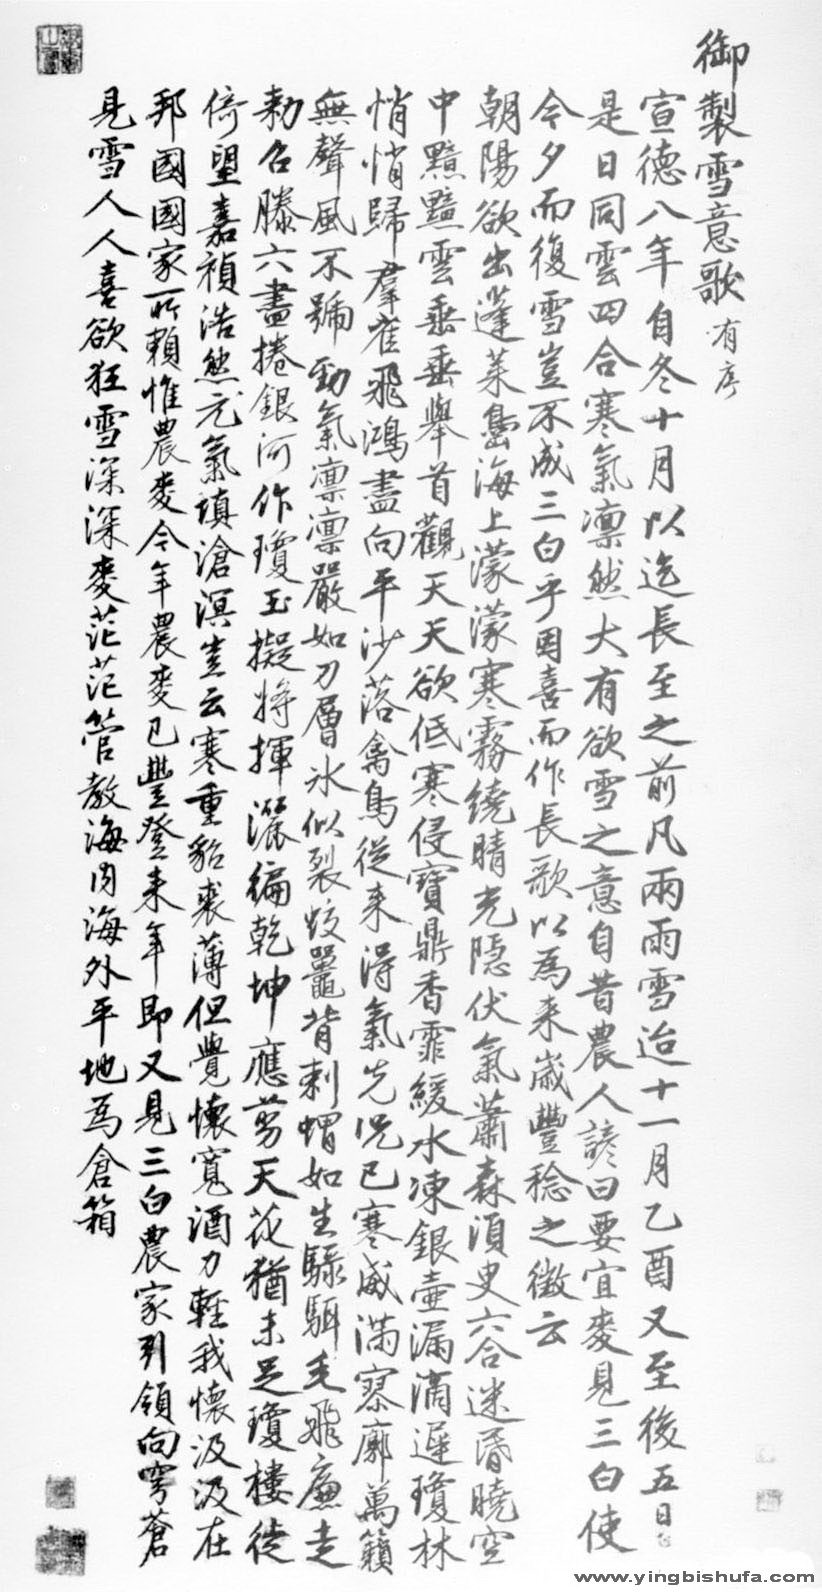 御製雪意歌 有序
宣德八年自冬十月以迄長至之前凡兩雨雪迨十一月乙酉又至後五日
是日同雲四合寒氣凛然大有欲雪之意自昔農人諺曰要宜麥見三白使
今夕而復雪豈不成三白乎因喜而作長歌以為来歲豐稔之徵云
朝陽欲出蓬莱島海上濛濛寒霧繞晴光隱伏氣蕭森湏臾六合迷昏曉空
中黯黯雲垂垂舉首觀天天欲低寒侵寶鼎香霏緩水凍銀壺漏滴遲瓊林
悄悄歸羣雀飛鴻盡向平沙落禽鳥從来得氣先况已寒威滿寥廓萬籟
無聲風不號勁氣凛凛嚴如刀層氷似裂蛟鼉背刺蝟如生騄駬毛飛廉走
勅召滕六盡捲銀河作瓊玉擬將揮灑徧乾坤應剪天花猶未足瓊樓徙
倚望嘉禎浩然元氣填滄溟豈云寒重貂裘薄但覺懷寬酒力輕我懷汲汲在
邦國國家所賴惟農麥今年農麥已豐登来年即又見三白農家引領向穹蒼
見雪人人喜欲狂雪深深麥茫茫管教海内海外平地為倉箱
www.yingbishufa.com